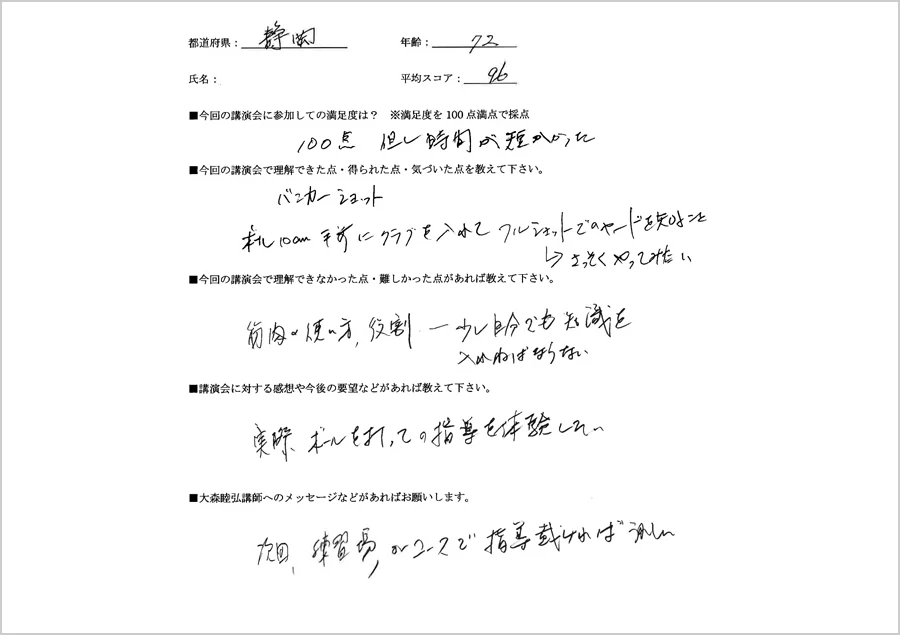 都道府県：静岡　年齢：72
氏名：　平均スコア：96
■今回の講演会に参加しての満足度は？　※満足度を100点満点で採点
100点　但し時間が短かかった
■今回の講演会で理解できた点・得られた点・気づいた点を教えて下さい。
バンカーショット
10cm 手前にクラブを入れて フルショットでのヤードを知ること
↳ さっそくやってみたい
■今回の講演会で理解できなかった点・難しかった点があれば教えて下さい。
筋肉の使い方，役割 ー 少し自分でも知識を
入れねばならない
■講演会に対する感想や今後の要望などがあれば教えて下さい。
実際、ボールを打っての指導を体験したい
■大森睦弘講師へのメッセージなどがあればお願いします。
次回，練習場，かコースで指導戴ければ嬉しい